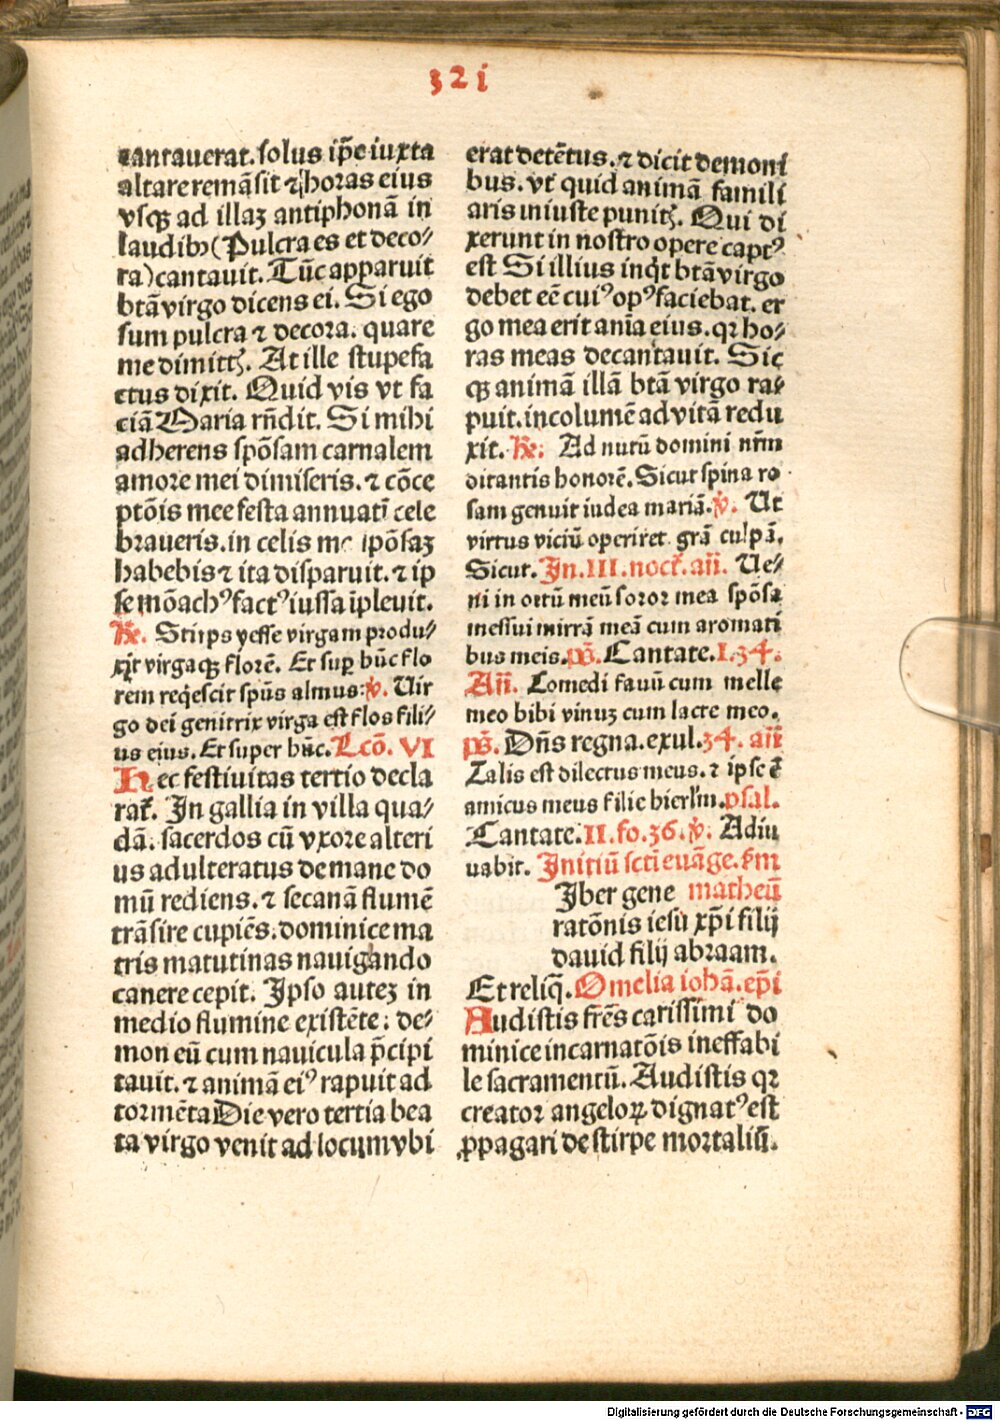 321
cantauerat. solus ip̄e iuxta
altare remāsit ⁊ horas eius
vsqꝫ ad illaꝫ antiphonā in
laudibꝫ (Pulcra es et deco⸗
ra) cantauit. Tūc apparuit
btā virgo dicens ei. Si ego
sum pulcra ⁊ decora. quare
me dimittꝭ. At ille stupefa
ctus dixit. Quid vis vt fa
ciā Maria rn̄dit. Si mihi
adherens spōsam carnalem
amore mei dimiseris. ⁊ cōce
ptōis mee festa annuatī cele
braueris. in celis me spōsaꝫ
habebis ⁊ ita disparuit. ⁊ ip
se mōachꝰ factꝰ iussa īpleuit.
R̄. Stirps yesse virgam produ⸗
xit virgaqꝫ florē. Et suꝑ hūc flo
rem reqͥescit spūs almus: v̄. Uir
go dei genitrix virga est flos fili⸗
us eius. Et super hūc. Lcō. VI
Hec festiuitas tertio decla
rat̄. In gallia in villa qua⸗
dā. sacerdos cū vxore alteri
us adulteratus de mane do
mū rediens. ⁊ secanā flumē
trāsire cupiēs. dominice ma
tris matutinas nauigando
canere cepit. Ipso auteꝫ in
medio flumine existēte: de⸗
mon eū cum nauicula p̄cipi
tauit. ⁊ animā eiꝰ rapuit ad
tormēta Die vero tertia bea
ta virgo venit ad locum vbi
erat detētus. ⁊ dicit demoni
bus. vt quid animā famili
aris iniuste punitꝭ. Qui di
xerunt in nostro opere captꝰ
est Si illius inqͥt btā virgo
debet eē cuiꝰ opꝰ faciebat. er
go mea erit aīa eius. qꝛ ho⸗
ras meas decantauit. Sic
qꝫ animā illā btā virgo ra⸗
puit. incolumē ad vitā redu
xit. R̄. Ad nutū domini nr̄m
ditantis honorē. Sicut spina ro
sam genuit iudea mariā. v̄. Ut
virtus viciū operiret grā culpā.
Sicut. In. III. noct̄. añ. Ue⸗
ni in ortū meū soror mea spōsa
messui mirrā meā cum aromati
bus meis. ps̄. Cantate. I. 34.
Añ. Comedi fauū cum melle
meo bibi vinuꝫ cum lacte meo.
ps̄. Dn̄s regna. exul. 34. añ
Talis est dilectus meus. ⁊ ipse ē
amicus meus filie hierl̄m. psal.
Cantate. II. fo. 36. v̄. Adiu
uabit. Initiū sctī euāge. scd̄m
Iber gene matheū
ratōnis iesu xp̄i filij
dauid filij abraam.
Et reliq̄. Omelia iohā. ep̄i
Audistis fr̄es carissimi do
minice incarnatōis ineffabi
le sacramentū. Audistis qꝛ
creator angeloꝝ dignatꝰ est
ꝓpagari de stirpe mortaliū.
Digitalisierung gefördert durch die Deutsche Forschungsgemeinschaft - DFG